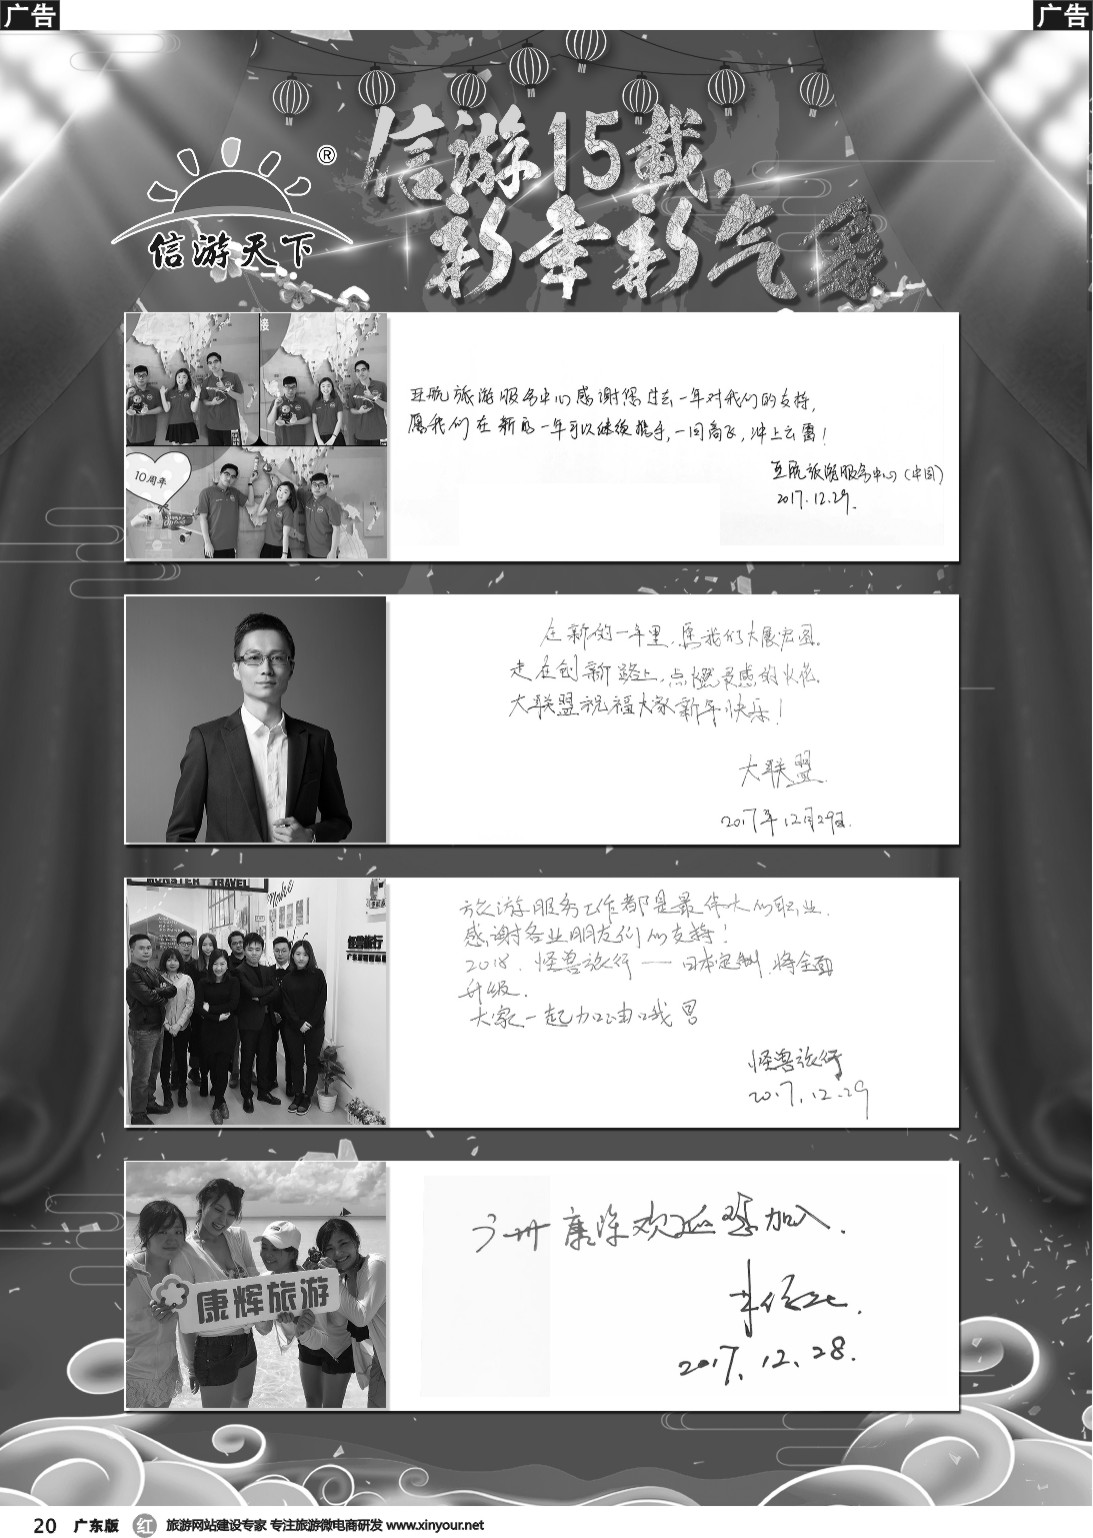 广告
广告
信游15載,
新年新气象
®
信游天下
10周年
亚航旅游服务中心感谢您过去一年对我们的支持,
愿我们在新的一年可以继续携手,一同高飞,冲上云霄!
亚航旅游服务中心(中国)
2017.12.29.
在新的一年里,愿我们大展宏图。
走在创新路上,点燃灵感的火花。
大联盟祝福大家新年快乐!
大联盟
2017年12月29日.
MONSTER TRAVEL
怪兽旅行
旅游服务工作都是最伟大的职业.
感谢各业朋友们的支持!
2018.怪兽旅行——日本定制.将全面
升级.
大家一起加油哦
怪兽旅行
2017.12.29
康辉旅游
欢迎您加入.
2017.12.28.
20 广东版 红 旅游网站建设专家 专注旅游微电商研发 www.xinyour.net